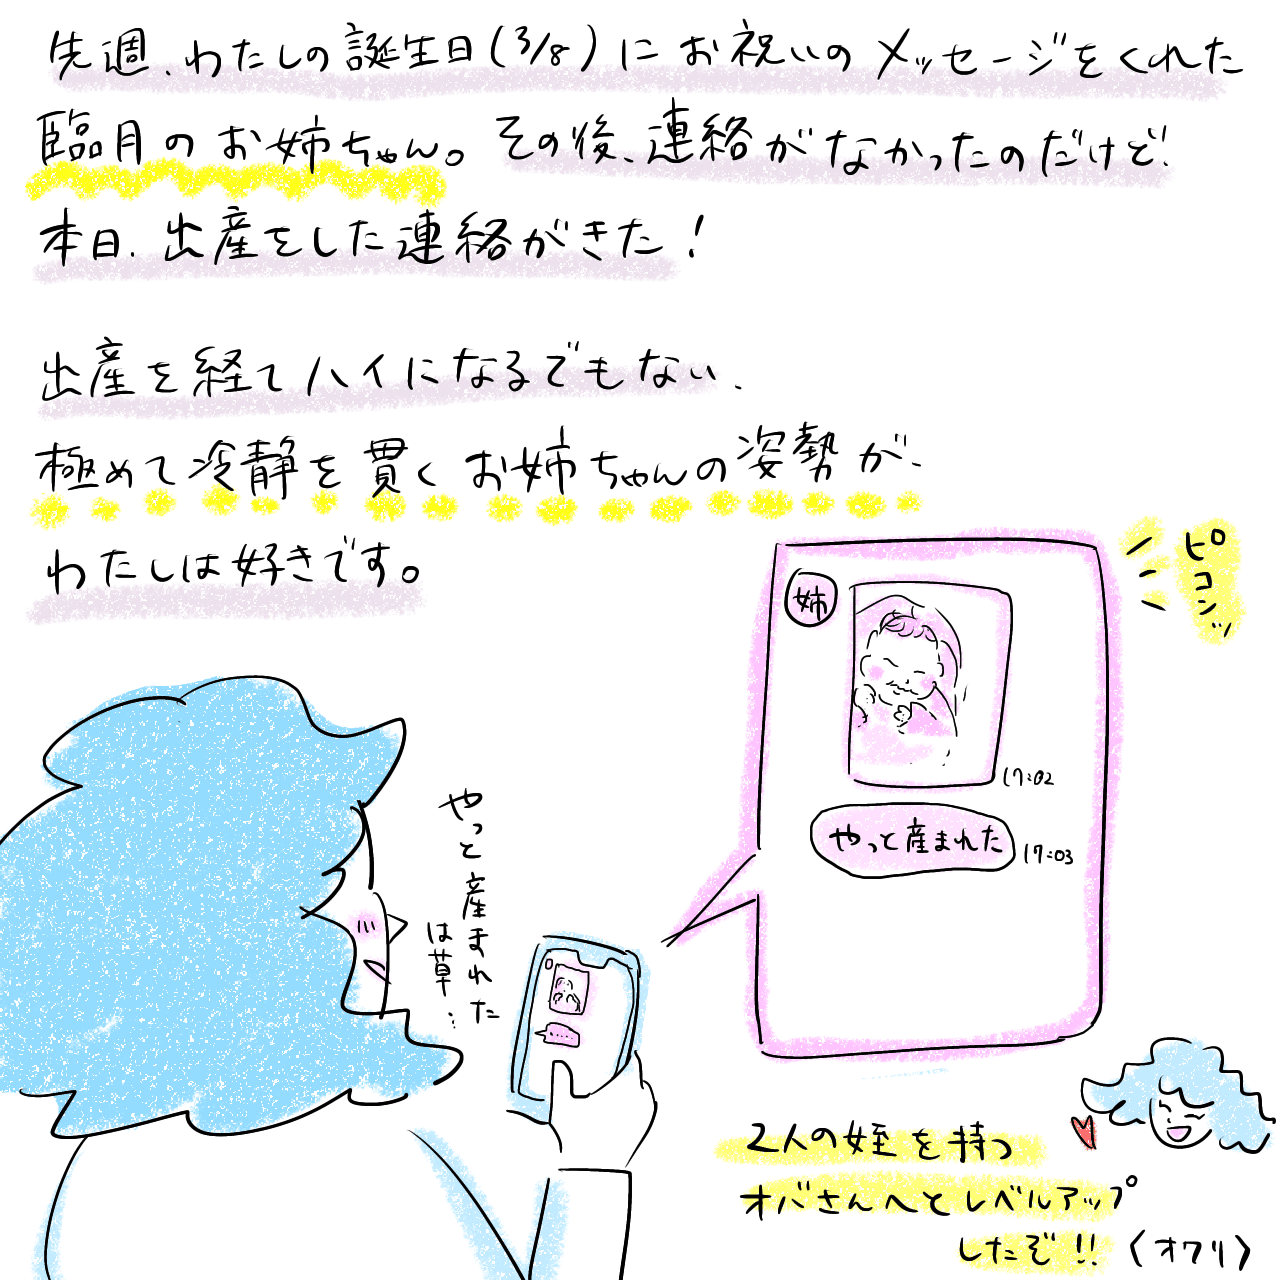 先週、わたしの誕生日(3/8)にお祝いのメッセージをくれた
臨月のお姉ちゃん。その後、連絡がなかったのだけど、
本日、出産をした連絡がきた！
出産を経てハイになるでもない、
極めて冷静を貫くお姉ちゃんの姿勢が、
わたしは好きです。
ピコンッ
姉
17:02
やっと産まれた
17:03
やっと産まれた
は草…
2人の姪を持つ
オバさんへとレベルアップ
したぞ!!〈オワリ〉